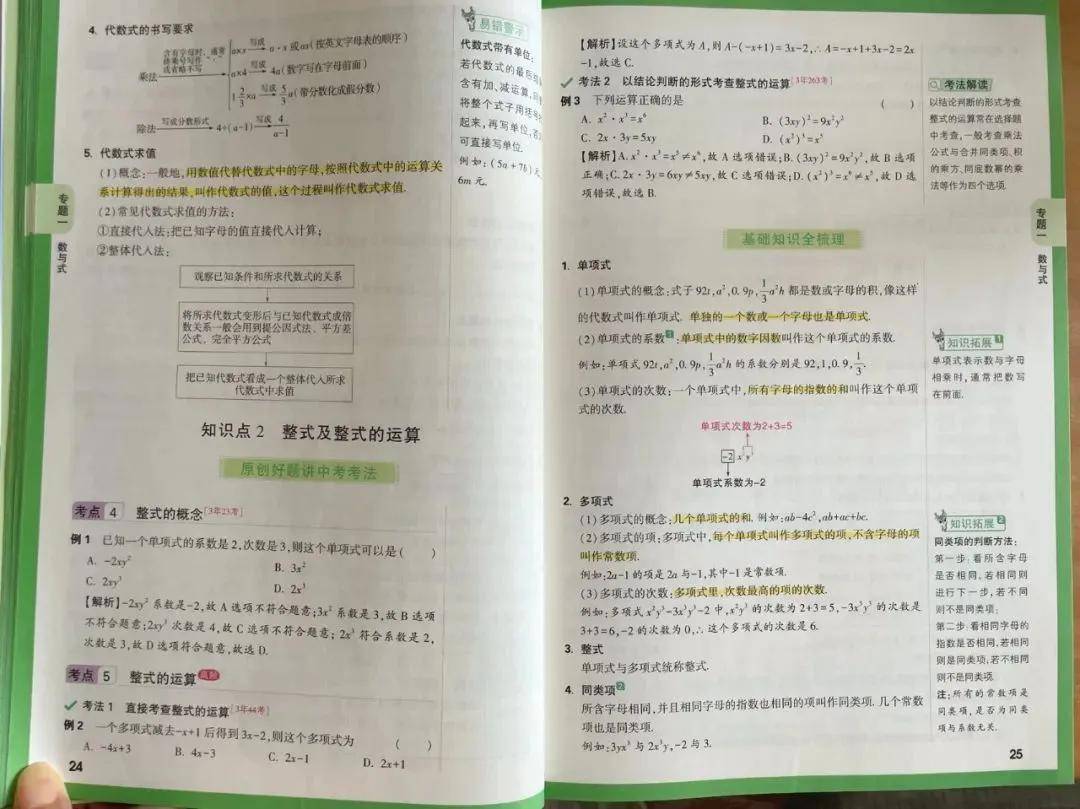 4. 代数式的书写要求
乘法
含有字母时,通常
将乘号写作"·"
或省略不写
a×x 写成 a·x或ax(按英文字母表的顺序)
a×4 写成 4a(数字写在字母前面)
1 2/3 ×a 写成 5/3 a(带分数化成假分数)
除法 写成分数形式 4÷(a-1) 写成 4/(a-1)
5. 代数式求值
(1)概念:一般地,用数值代替代数式中的字母,按照代数式中的运算关
系计算得出的结果,叫作代数式的值,这个过程叫作代数式求值.
(2)常见代数式求值的方法:
①直接代入法:把已知字母的值直接代入计算;
②整体代入法:
观察已知条件和所求代数式的关系
将所求代数式变形后与已知代数式成倍
数关系一般会用到提公因式法、平方差
公式、完全平方公式
把已知代数式看成一个整体代入所求
代数式中求值
易错警示
代数式带有单位:
若代数式的最后结
含有加、减运算,则
将整个式子用括号
起来,再写单位,否
可直接写单位.
例如:(5a+7b)元
6m元.
专题一
数与式
知识点2 整式及整式的运算
原创好题讲中考考法
考点 4 整式的概念[3年23考]
例1 已知一个单项式的系数是2,次数是3,则这个单项式可以是( )
A. -2xy² B. 3x²
C. 2xy³ D. 2x³
【解析】-2xy²系数是-2,故A选项不符合题意;3x²系数是3,故B选项
不符合题意;2xy³次数是4,故C选项不符合题意;2x³符合系数是2,
次数是3,故D选项符合题意,故选D.
考点 5 整式的运算 高频
考法1 直接考查整式的运算[3年44考]
例2 一个多项式减去-x+1后得到3x-2,则这个多项式为 ( )
A. -4x+3 B. 4x-3 C. 2x-1 D. 2x+1
24
【解析】设这个多项式为A,则A-(-x+1)=3x-2,∴A=-x+1+3x-2=2x
-1,故选C.
考法2 以结论判断的形式考查整式的运算[3年263考]
例3 下列运算正确的是 ( )
A. x²·x³=x⁶ B. (3xy)²=9x²y²
C. 2x·3y=5xy D. (x²)³=x⁵
【解析】A.x²·x³=x⁵≠x⁶,故A选项错误;B.(3xy)²=9x²y²,故B选项
正确;C.2x·3y=6xy≠5xy,故C选项错误;D.(x²)³=x⁶≠x⁵,故D选
项错误,故选B.
考法解读
以结论判断的形式考查
整式的运算常在选择题
中考查,一般考查乘法
公式与合并同类项、积
的乘方、同底数幂的乘
法等作为四个选项.
基础知识全梳理
1. 单项式
(1)单项式的概念:式子92t,a²,0.9p,1/3 a²h都是数或字母的积,像这样
的代数式叫作单项式. 单独的一个数或一个字母也是单项式.
(2)单项式的系数1:单项式中的数字因数叫作这个单项式的系数.
例如:单项式92t,a²,0.9p,1/3 a²h的系数分别是92,1,0.9,1/3.
(3)单项式的次数:一个单项式中,所有字母的指数的和叫作这个单项
式的次数.
单项式次数为2+3=5
-2 x²y³
单项式系数为-2
知识拓展1
单项式表示数与字母
相乘时,通常把数写
在前面.
2. 多项式
(1)多项式的概念:几个单项式的和. 例如:ab-4c²,ab+ac+bc.
(2)多项式的项:多项式中,每个单项式叫作多项式的项,不含字母的项
叫作常数项.
例如:2a-1的项是2a与-1,其中-1是常数项.
(3)多项式的次数:多项式里,次数最高的项的次数.
例如:多项式x²y³-3x³y³-2中,x²y³的次数为2+3=5,-3x³y³的次数是
3+3=6,-2的次数为0,∴这个多项式的次数是6.
3. 整式
单项式与多项式统称整式.
4. 同类项2
所含字母相同,并且相同字母的指数也相同的项叫作同类项. 几个常数
项也是同类项.
例如:3yx³与2x³y,-2与3.
知识拓展2
同类项的判断方法:
第一步:看所含字母
是否相同,若相同则
进行下一步,若不同
则不是同类项;
第二步:看相同字母的
指数是否相同,若相同
则是同类项,若不相同
则不是同类项.
注:所有的常数项是
同类项,是否为同类
项与系数无关.
专题一
数与式
25